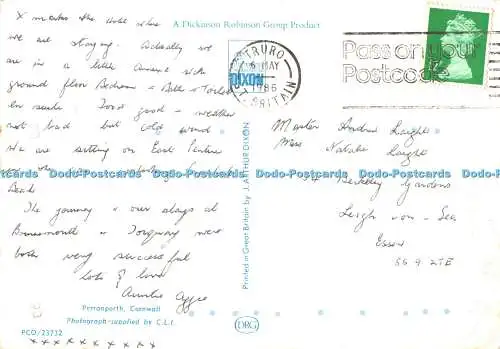 A Dickinson Robinson Group Product
X marks the hotel where
we are staying. Actually we
are in a little annexe with
ground floor Bedroom + Bath + Toilet
En suite Food good - weather
not bad but cold wind
We are sitting on East
Beach
The journey + over stays at
Bournemouth + Torquay were
both very successful
lots of love
Auntie Aggie
Perranporth, Cornwall
Photograph supplied by C.L.I.
PCO/23732
x x x x x x x x x x
Printed in Great Britain by J. ARTHUR DIXON
DIXON
DRG
TRURO
6 MAY
1986
GT. BRITAIN
Pass on your
Postcode
Master Andrew Laight
Miss Natalie Laight
4 Berkeley Gardens
Leigh-on-Sea
Essex
SS9 2TE
Dodo-Postcards Dodo-Postcards Dodo-Postcards Dodo-Postcards Dodo-Postcards Dodo-Postcards